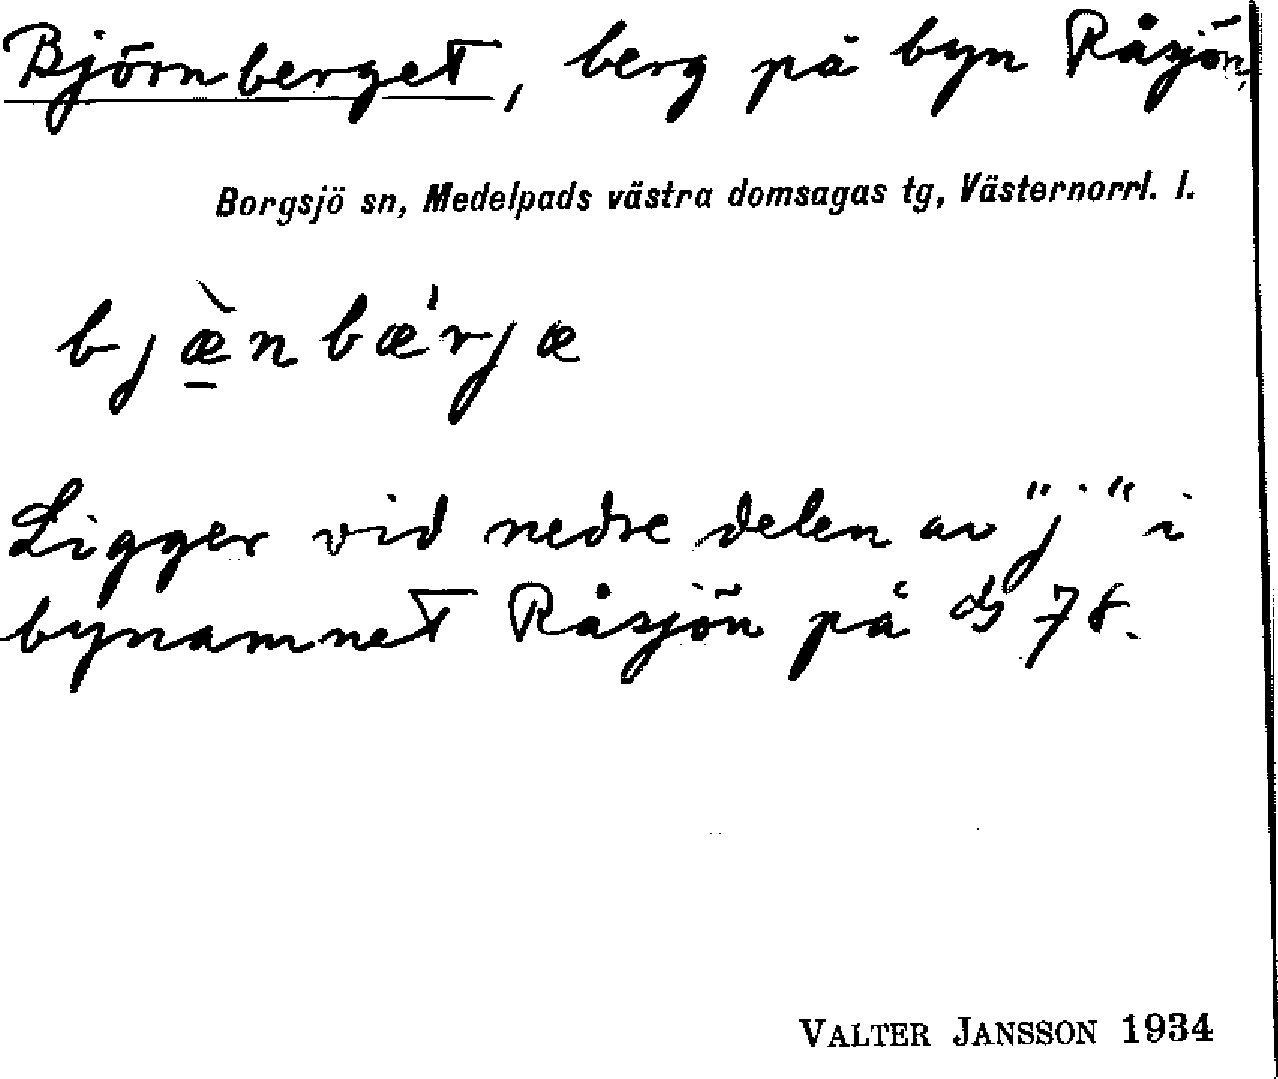 Björnberget, berg på byn Råsjön,
Borgsjö sn, Medelpads västra domsagas tg, Västernorrl. l.
bjæ̠̀nbæ'rjæ
Ligger vid nedre delen av "j" i
bynamnet Råsjön på ds 78.
VALTER JANSSON 1934